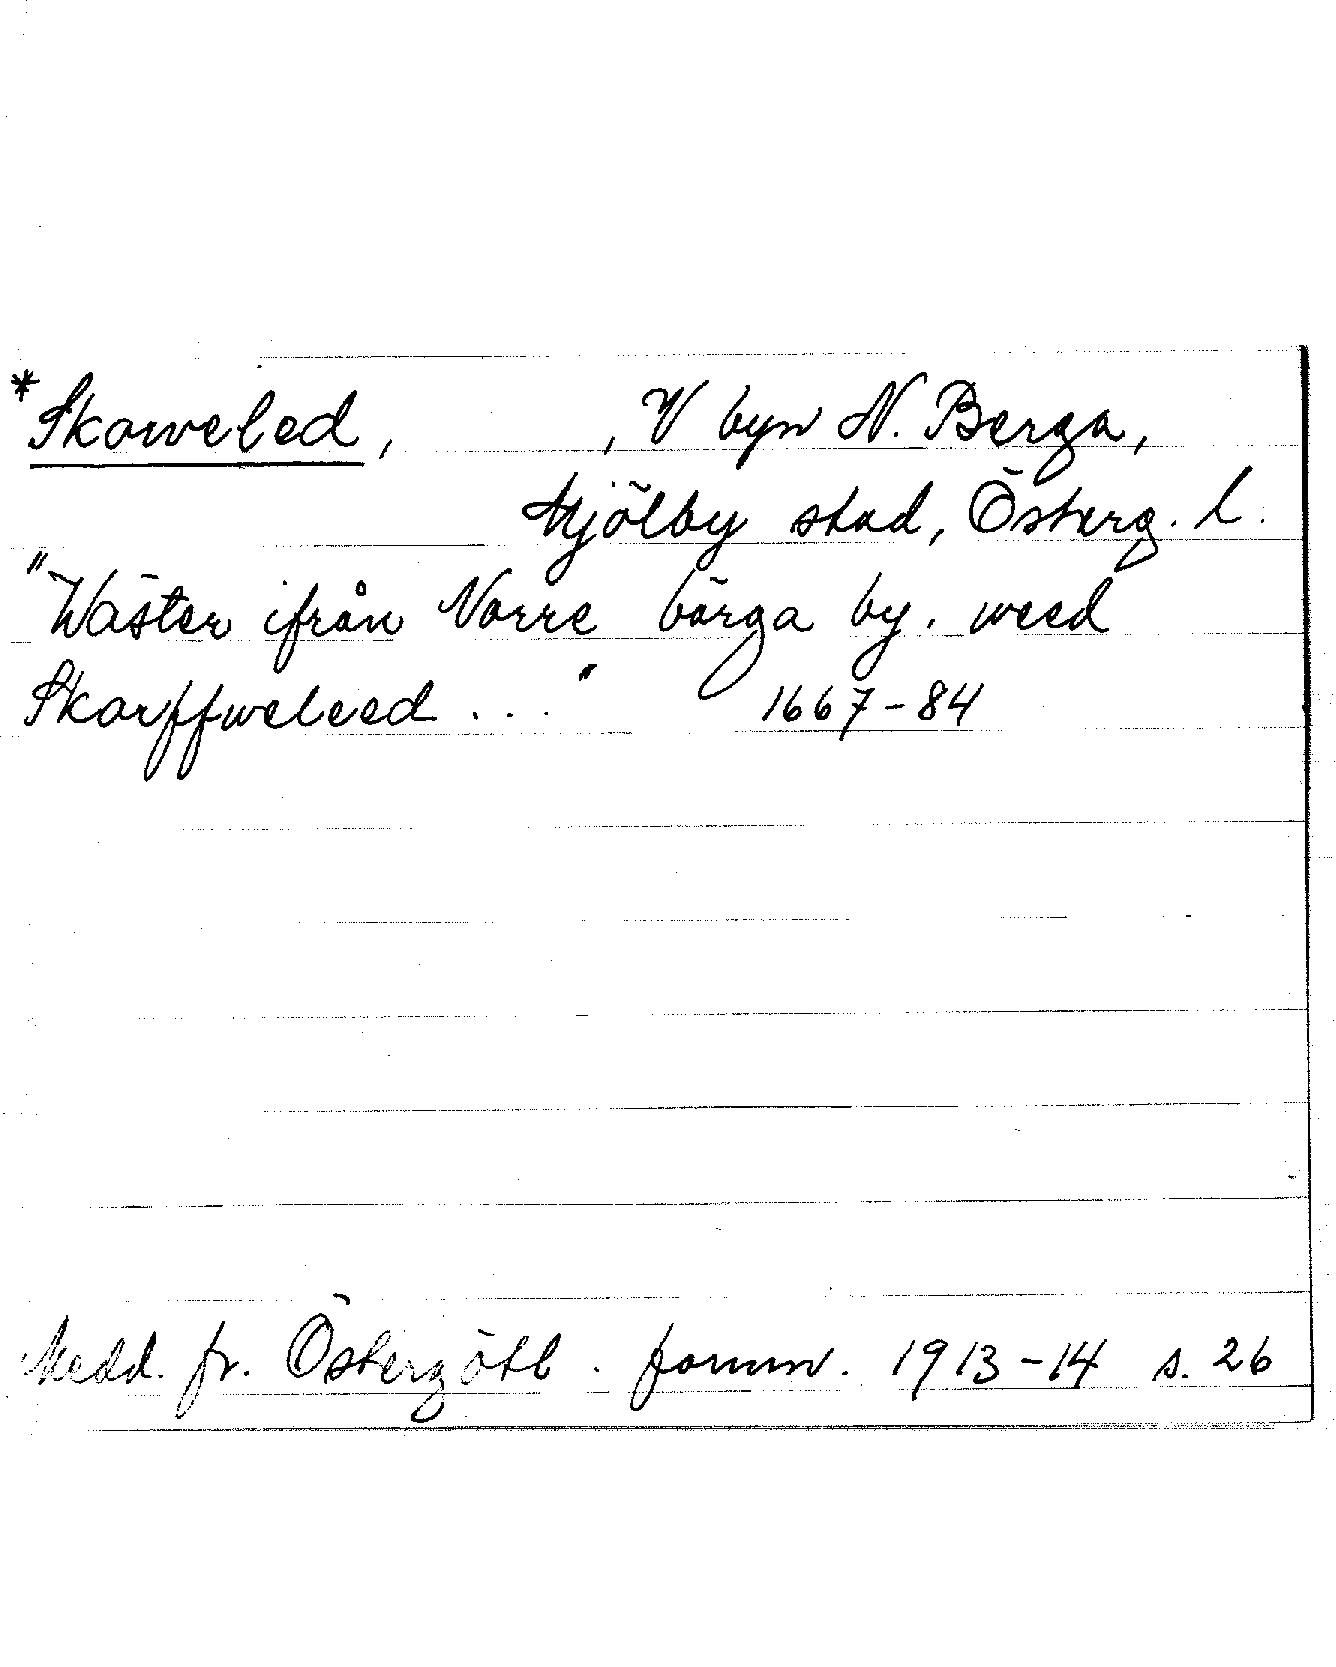 *Skoweled, , V byn N. Berga,
Mjölby stad, Österg. L.
"Wäster ifrån Norre bärga by. weed
Skorffweleed ..." 1667-84
Medd. fr. Östergötl. fornm. 1913-14 s. 26